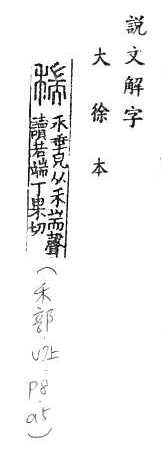 說文解字
大徐本
禾垂皃从禾耑聲
讀若端丁果切
(禾部·七上·P8·a5)